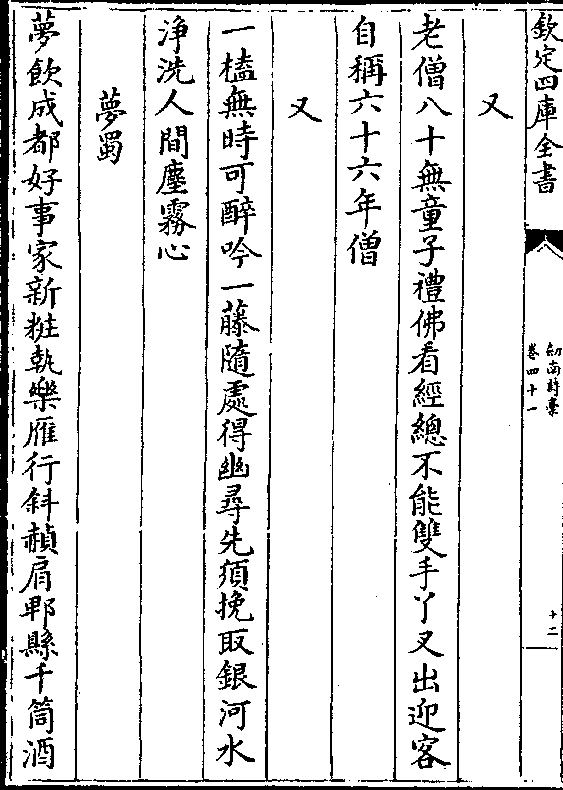 欽定四庫全書
劒南詩稾
卷四十一
十二
又
老僧八十無童子禮佛看經總不能雙手丫叉出迎客
自稱六十六年僧
又
一榼無時可醉吟一藤隨處得幽尋先須挽取銀河水
浄洗人間塵霧心
夢蜀
夢飲成都好事家新粧執樂雁行斜赪肩郫縣千筒酒